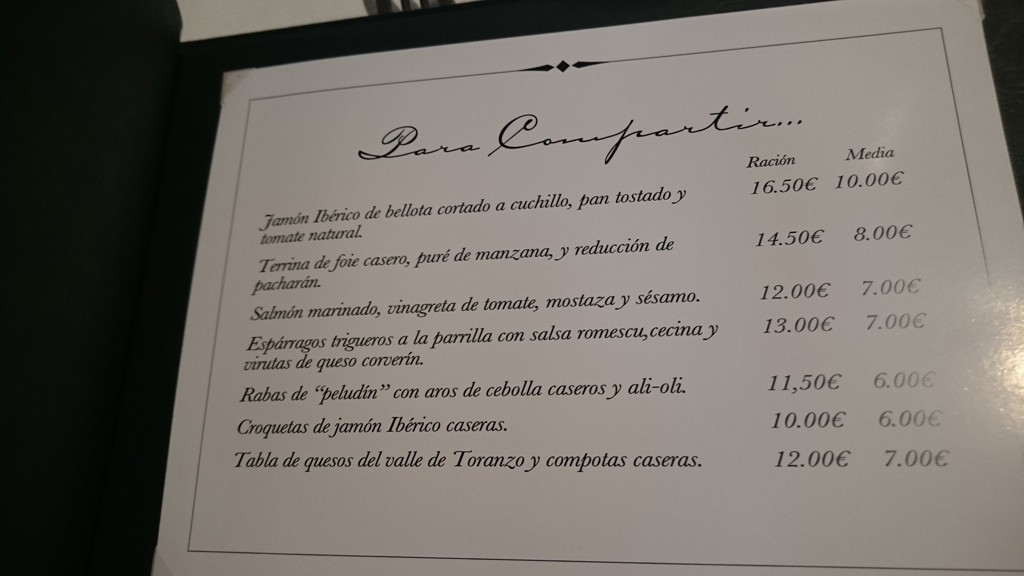 Para Compartir...
Ración Media
Jamón Ibérico de bellota cortado a cuchillo, pan tostado y 16.50€ 10.00€
tomate natural.
Terrina de foie casero, puré de manzana, y reducción de 14.50€ 8.00€
pacharán.
Salmón marinado, vinagreta de tomate, mostaza y sésamo. 12.00€ 7.00€
Espárragos trigueros a la parrilla con salsa romescu,cecina y 13.00€ 7.00€
virutas de queso corverín.
Rabas de “peludín” con aros de cebolla caseros y ali-oli. 11,50€ 6.00€
Croquetas de jamón Ibérico caseras. 10.00€ 6.00€
Tabla de quesos del valle de Toranzo y compotas caseras. 12.00€ 7.00€